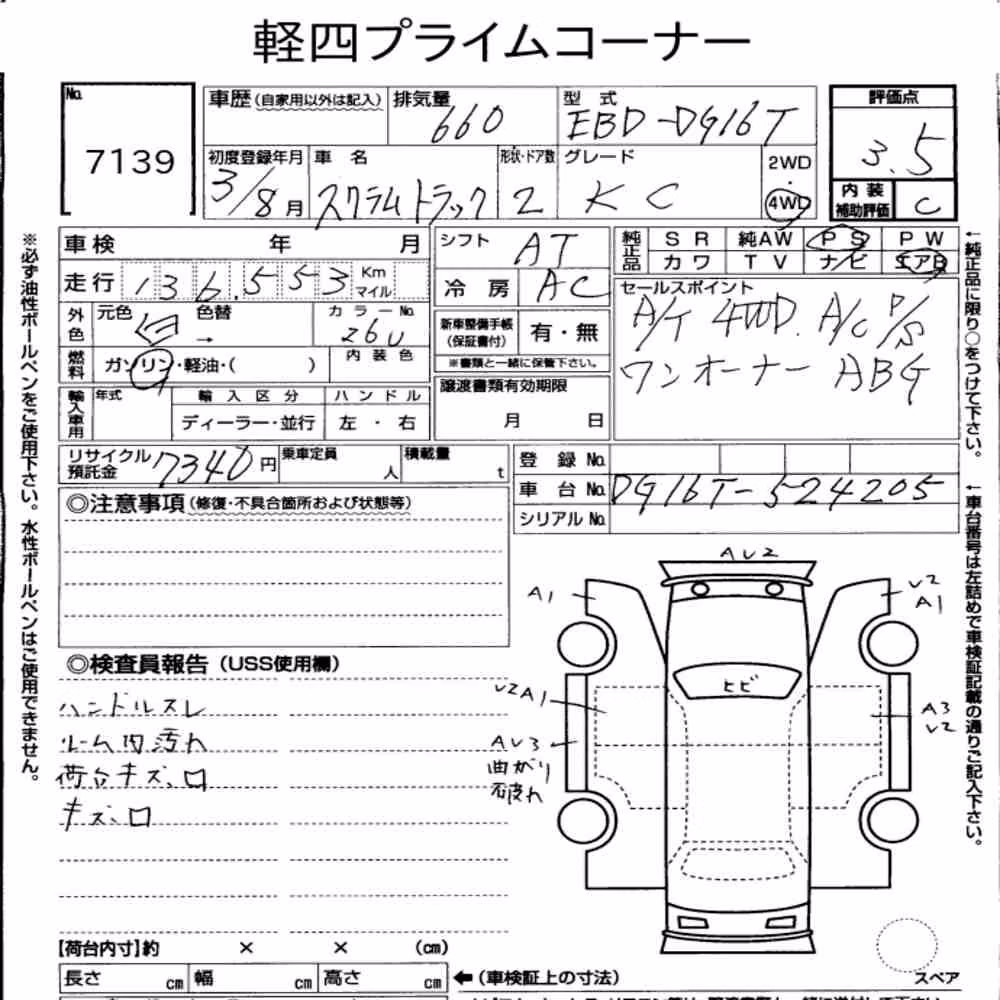 軽四プライムコーナー
No. 7139
車歴(自家用以外は記入) 排気量 660 型式 EBD-DG16T
初度登録年月 3/8月 車名 スクラムトラック 形状・ドア数 2 グレード KC 2WD・4WD
評価点 3.5
内装補助評価 C
車検 年 月
シフト AT
純正品 SR 純AW PS PW
カワ TV ナビ エアB
走行 136,553 Km マイル
冷房 AC
セールスポイント
A/T 4WD. A/C P/S
ワンオーナー ABG
外色 元色 色替 → カラーNo. 26U
新車整備手帳(保証書付) 有・無
※書類と一緒に保管下さい。
燃料 ガソリン・軽油・( ) 内装色
譲渡書類有効期限
月 日
輸入車用 年式 輸入区分 ハンドル
ディーラー・並行 左・右
リサイクル預託金 7340円 乗車定員 人 積載量 t
登録No.
車台No. DG16T-524205
シリアルNo.
◎注意事項(修復・不具合箇所および状態等)
◎検査員報告(USS使用欄)
ハンドルスレ
ルーム内汚れ
荷台キズ、ロ
キズ、ロ
AU2
A1
U2
A1
ヒビ
UZA1
AU3
曲がり
破れ
A3
U2
【荷台内寸】約 × × (cm)
長さ cm 幅 cm 高さ cm ←(車検証上の寸法)
スペア
※必ず油性ボールペンをご使用下さい。水性ボールペンはご使用できません。
←純正品に限り○をつけて下さい。
←車台番号は左詰めで車検証記載の通りご記入下さい。